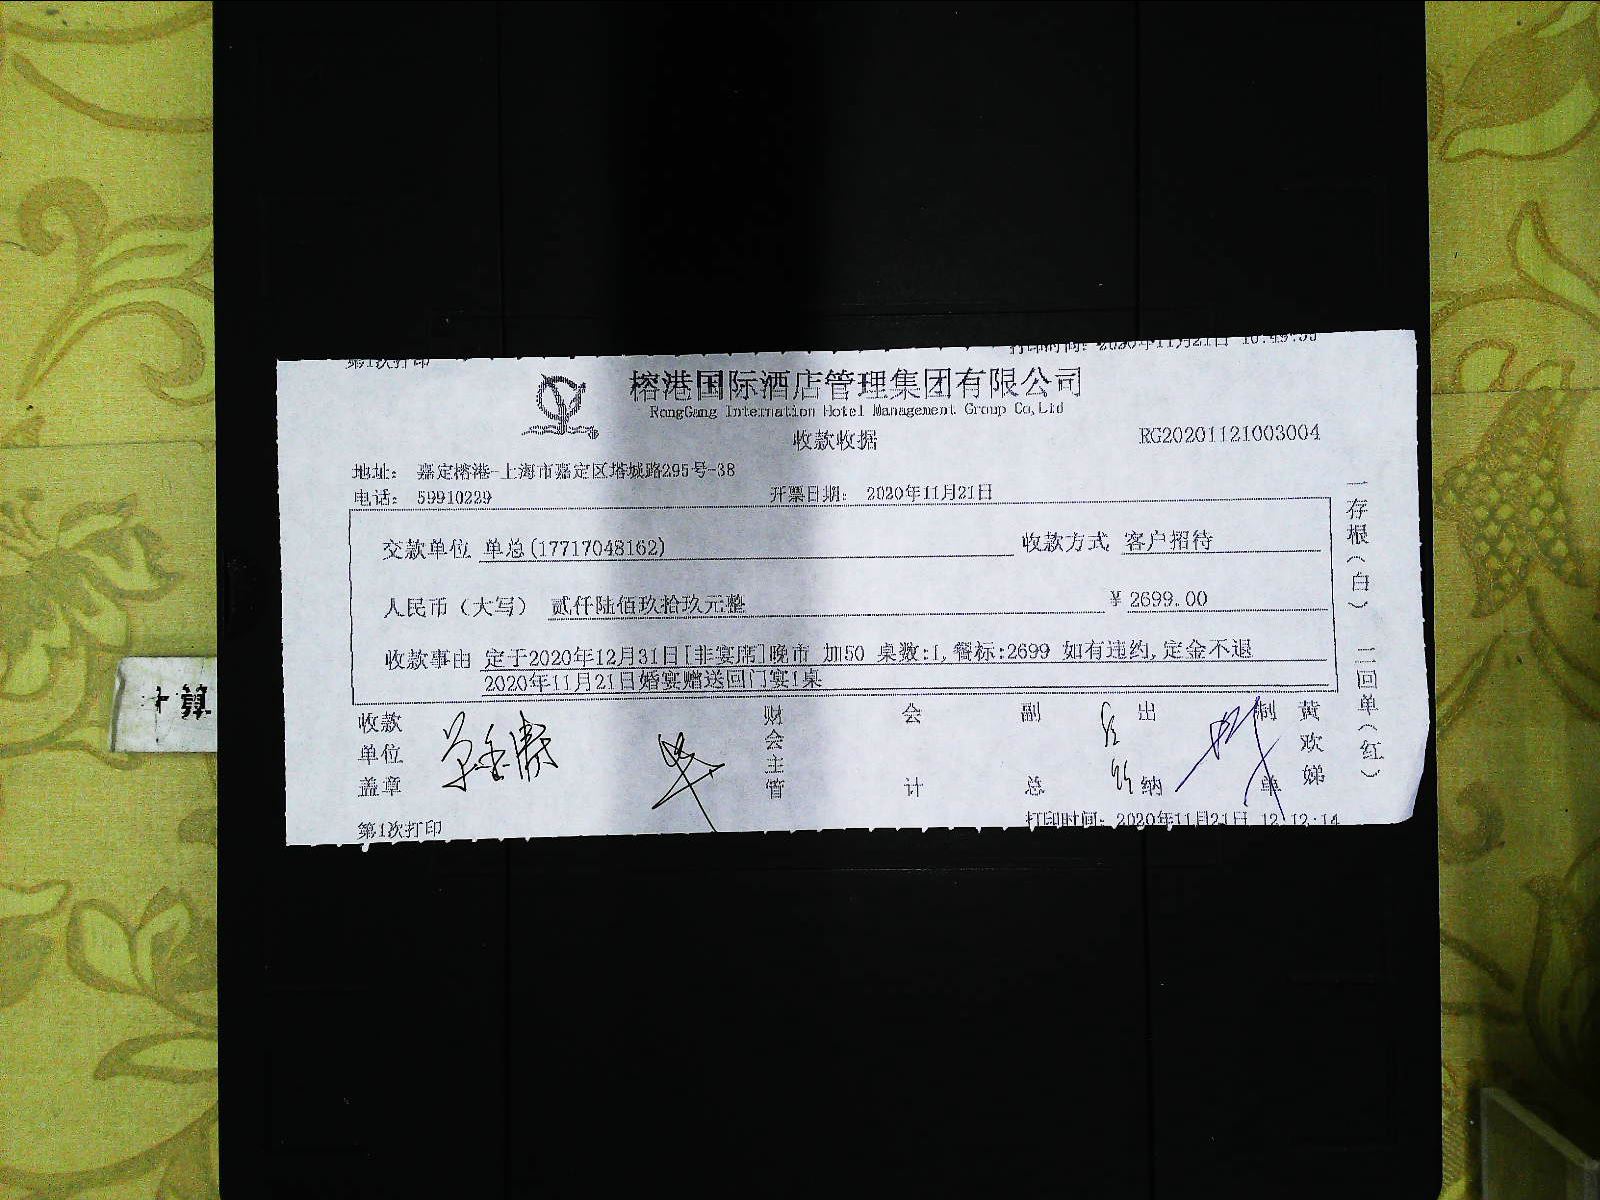 第1次打印
打印时间: 2020年11月21日 10:49:55
榕港国际酒店管理集团有限公司
RongGang Internation Hotel Management Group Co,Ltd
收款收据
RG20201121003004
地址: 嘉定榕港-上海市嘉定区塔城路295号-38
电话: 59910229
开票日期: 2020年11月21日
交款单位 单总(17717048162)
收款方式 客户招待
人民币（大写） 贰仟陆佰玖拾玖元整
¥ 2699.00
收款事由 定于2020年12月31日[非宴席]晚市 加50 桌数:1,餐标:2699 如有违约,定金不退
2020年11月21日婚宴赠送回门宴1桌
收款单位盖章
财会主管
会计
副总
出纳
制单
黄欢娣
一存根(白) 二回单(红)
第1次打印
打印时间: 2020年11月21日 12:12:14
算